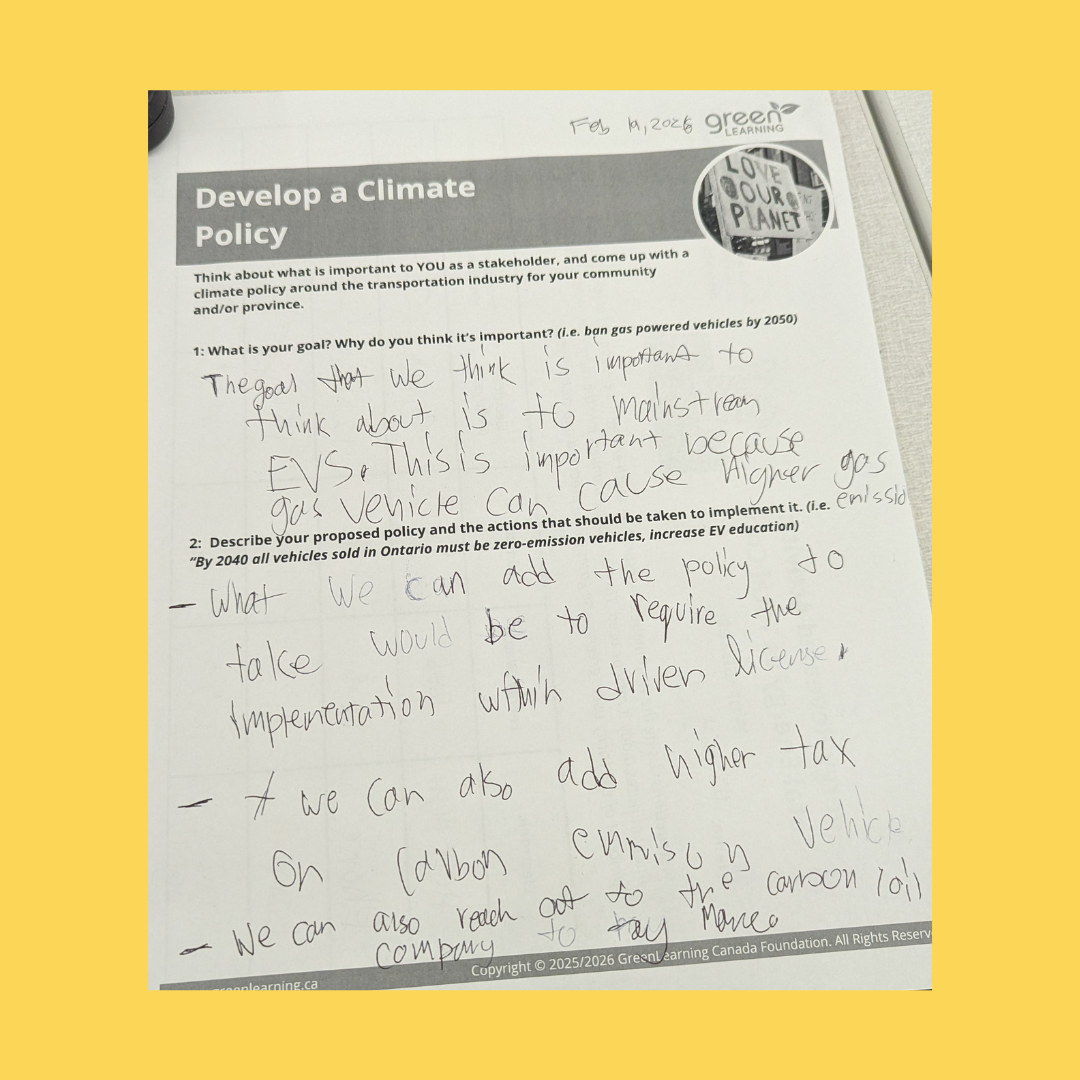 Feb 19, 2026
green
LEARNING
LOVE
OUR
PLANET
Develop a Climate
Policy
Think about what is important to YOU as a stakeholder, and come up with a
climate policy around the transportation industry for your community
and/or province.
1: What is your goal? Why do you think it's important? (i.e. ban gas powered vehicles by 2050)
The goal that we think is important to
think about is to mainstream
EVS. This is important because
gas vehicle can cause Higher gas
emissio
2: Describe your proposed policy and the actions that should be taken to implement it. (i.e.
"By 2040 all vehicles sold in Ontario must be zero-emission vehicles, increase EV education)
- What we can add the policy to
take would be to require the
implementation within driven license.
- we can also add higher tax
on carbon emmison vehicle
- We can also reach out to the carbon /oil
company to
Copyright © 2025/2026 GreenLearning Canada Foundation. All Rights Reserv
eenlearning.ca